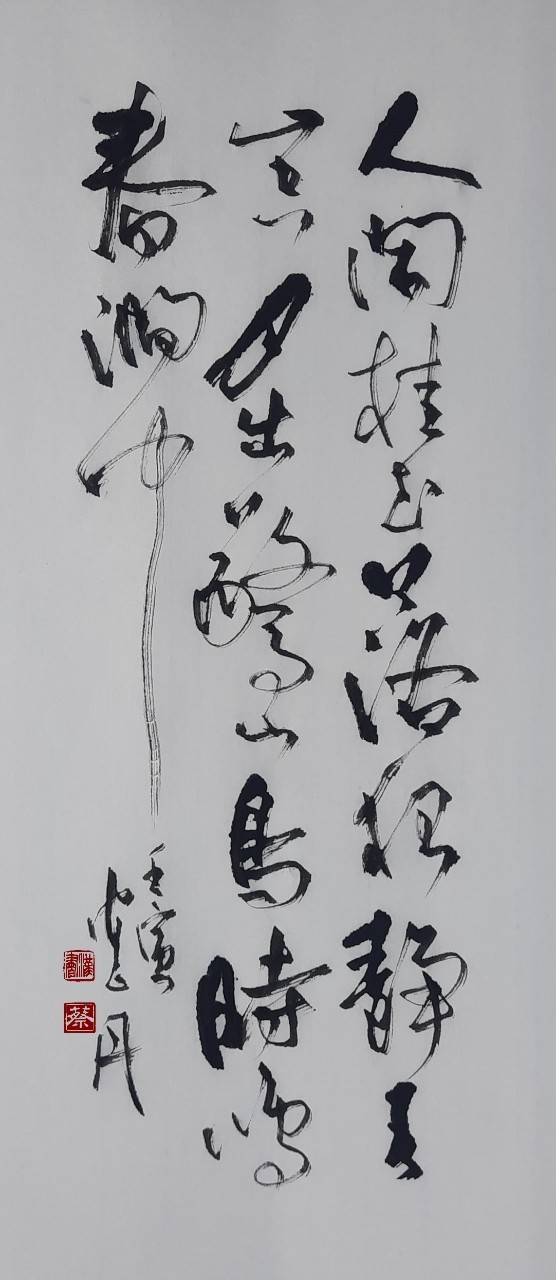 人閑桂花落夜靜春
山空月出驚山鳥時鳴
春澗中
壬寅
丹
蔡